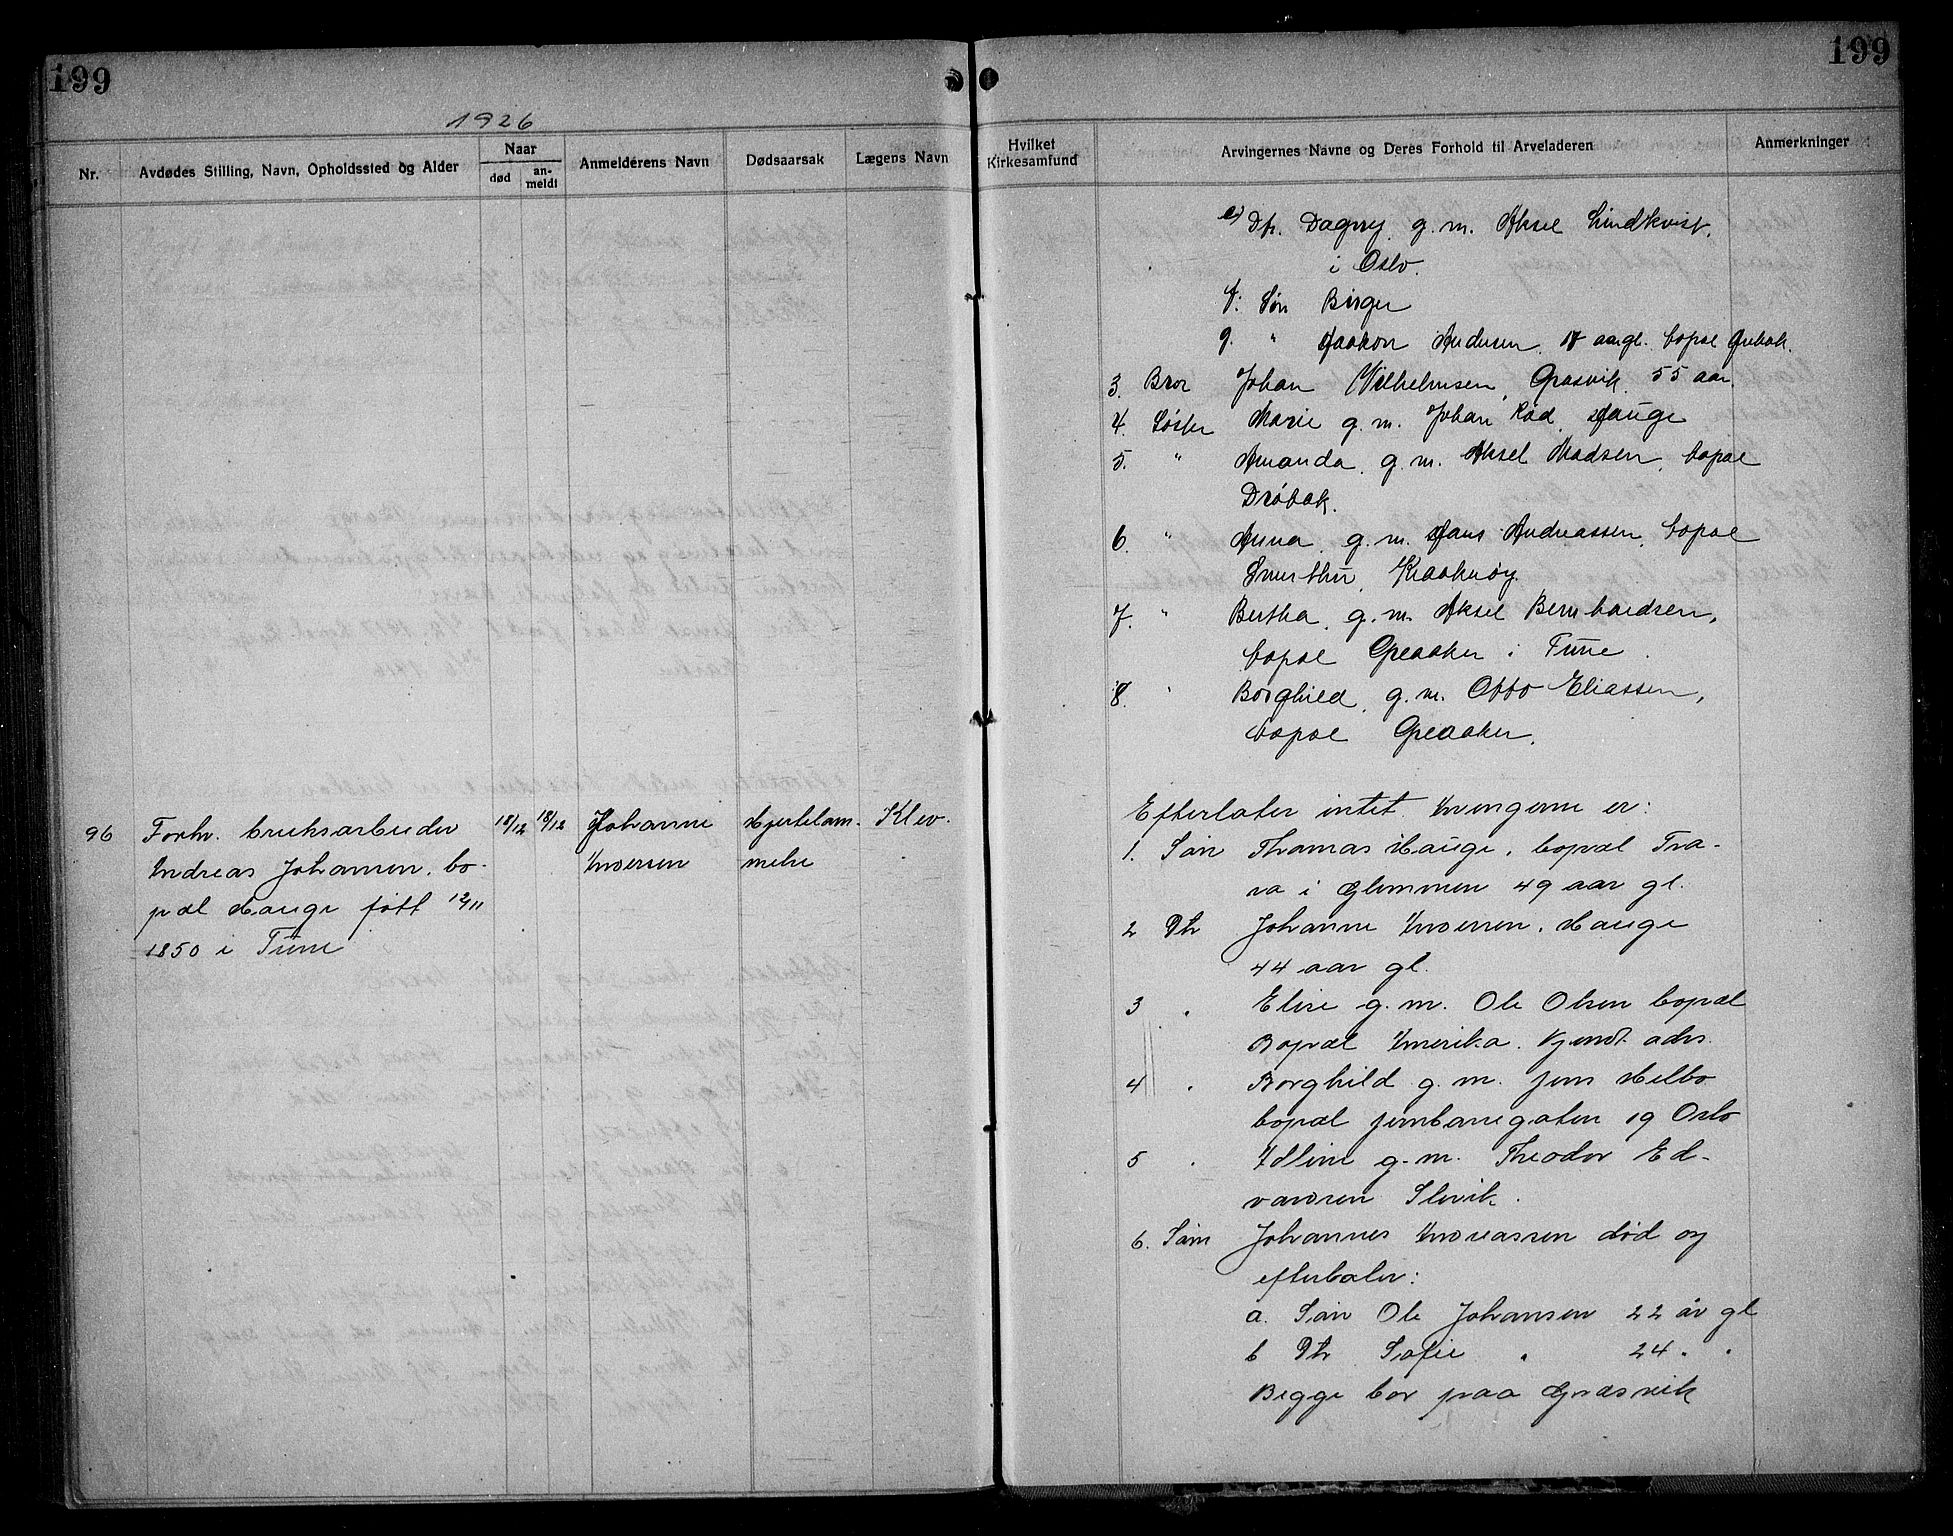 199
199
1926
Nr.
Avdødes Stilling, Navn, Opholdssted og Alder
Naar
død
an-
meldt
Anmelderens Navn
Dødsaarsak
Lægens Navn
Hvilket
Kirkesamfund
Arvingernes Navne og Deres Forhold til Arveladeren
Anmerkninger
e) Dtr. Dagny, g. m. Aksel Lindkvist,
i Oslo.
f: Søn Birger
g. " Haakon Andersen 17 aargl. bopæl
3. Bror Johan Vilhelmsen, Græsvik 55 aar.
4. Søster Marie g. m. Johan Rød, Hauge
5. " Amanda, g. m. Aksel Madsen, bopæl
Drøbak.
6. " Anna, g. m. Hans Andreassen, bopæl
Kraakerøy.
7. " Bertha, g. m. Aksel Bernhardsen,
bopæl Greaaker i Tune.
8. " Borghild, g. m. Otto Eliassen,
bopæl Greaaker.
96
Forhv. bruksarbeider
Andreas Johansen, bo-
pæl Hauge født 12/11
1850 i Tune
18/12
18/12
Johanne
Andersen
Hjertelam-
melse
Klev.
Efterlater intet. Arvingerne er:
1. Søn Thomas Hauge, bopæl Tra-
ra i Glemmen 49 aar gl.
2 Dtr Johanne Andersen, Hauge
44 aar gl.
3 " Elise g. m. Ole Olsen bopæl
Bopæl Amerika. Kjendt adrs.
4 " Borghild g. m. Jens Helbo
bopæl Jernbanegaten 19 Oslo
5 " Adline g. m. Theodor Ed-
vardsen Slevik.
6. Søn Johannes Andreassen død og
efterlater:
a. Søn Ole Johansen 22 år gl
b Dtr Sofie " 24 " "
Begge bor paa Græsvik